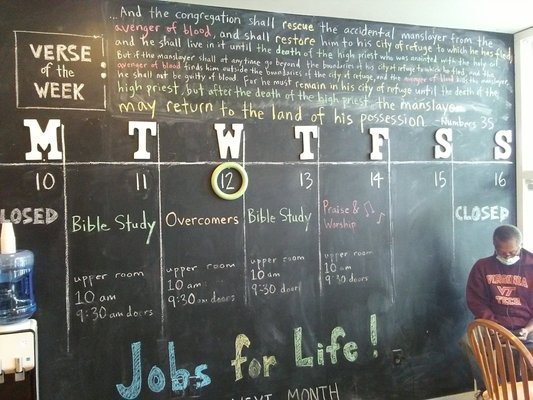 ...And the congregation shall rescue the accidental manslayer from the
avenger of blood, and shall restore him to his city of refuge to which he has fled,
and he shall live in it until the death of the high priest who was anointed with the holy oil.
But if the manslayer shall at any time go beyond the boundaries of his city of refuge to which he fled, and the
avenger of blood finds him outside the boundaries of his city of refuge, and the avenger of blood kills the manslayer,
he shall not be guilty of blood. For he must remain in his city of refuge until the death of the
high priest, but after the death of the high priest the manslayer
may return to the land of his possession. - Numbers 35
VERSE
of the
WEEK
M T W T F S S
10 11 12 13 14 15 16
CLOSED
Bible Study
upper room
10 am
9:30 am doors
Overcomers
upper room
10 am
9:30 am doors
Bible Study
upper room
10 am
9:30 doors
Praise &
Worship
upper room
10 am
9:30 am doors
CLOSED
Jobs for Life!
NEXT MONTH
VIRGINIA
VT
TECH